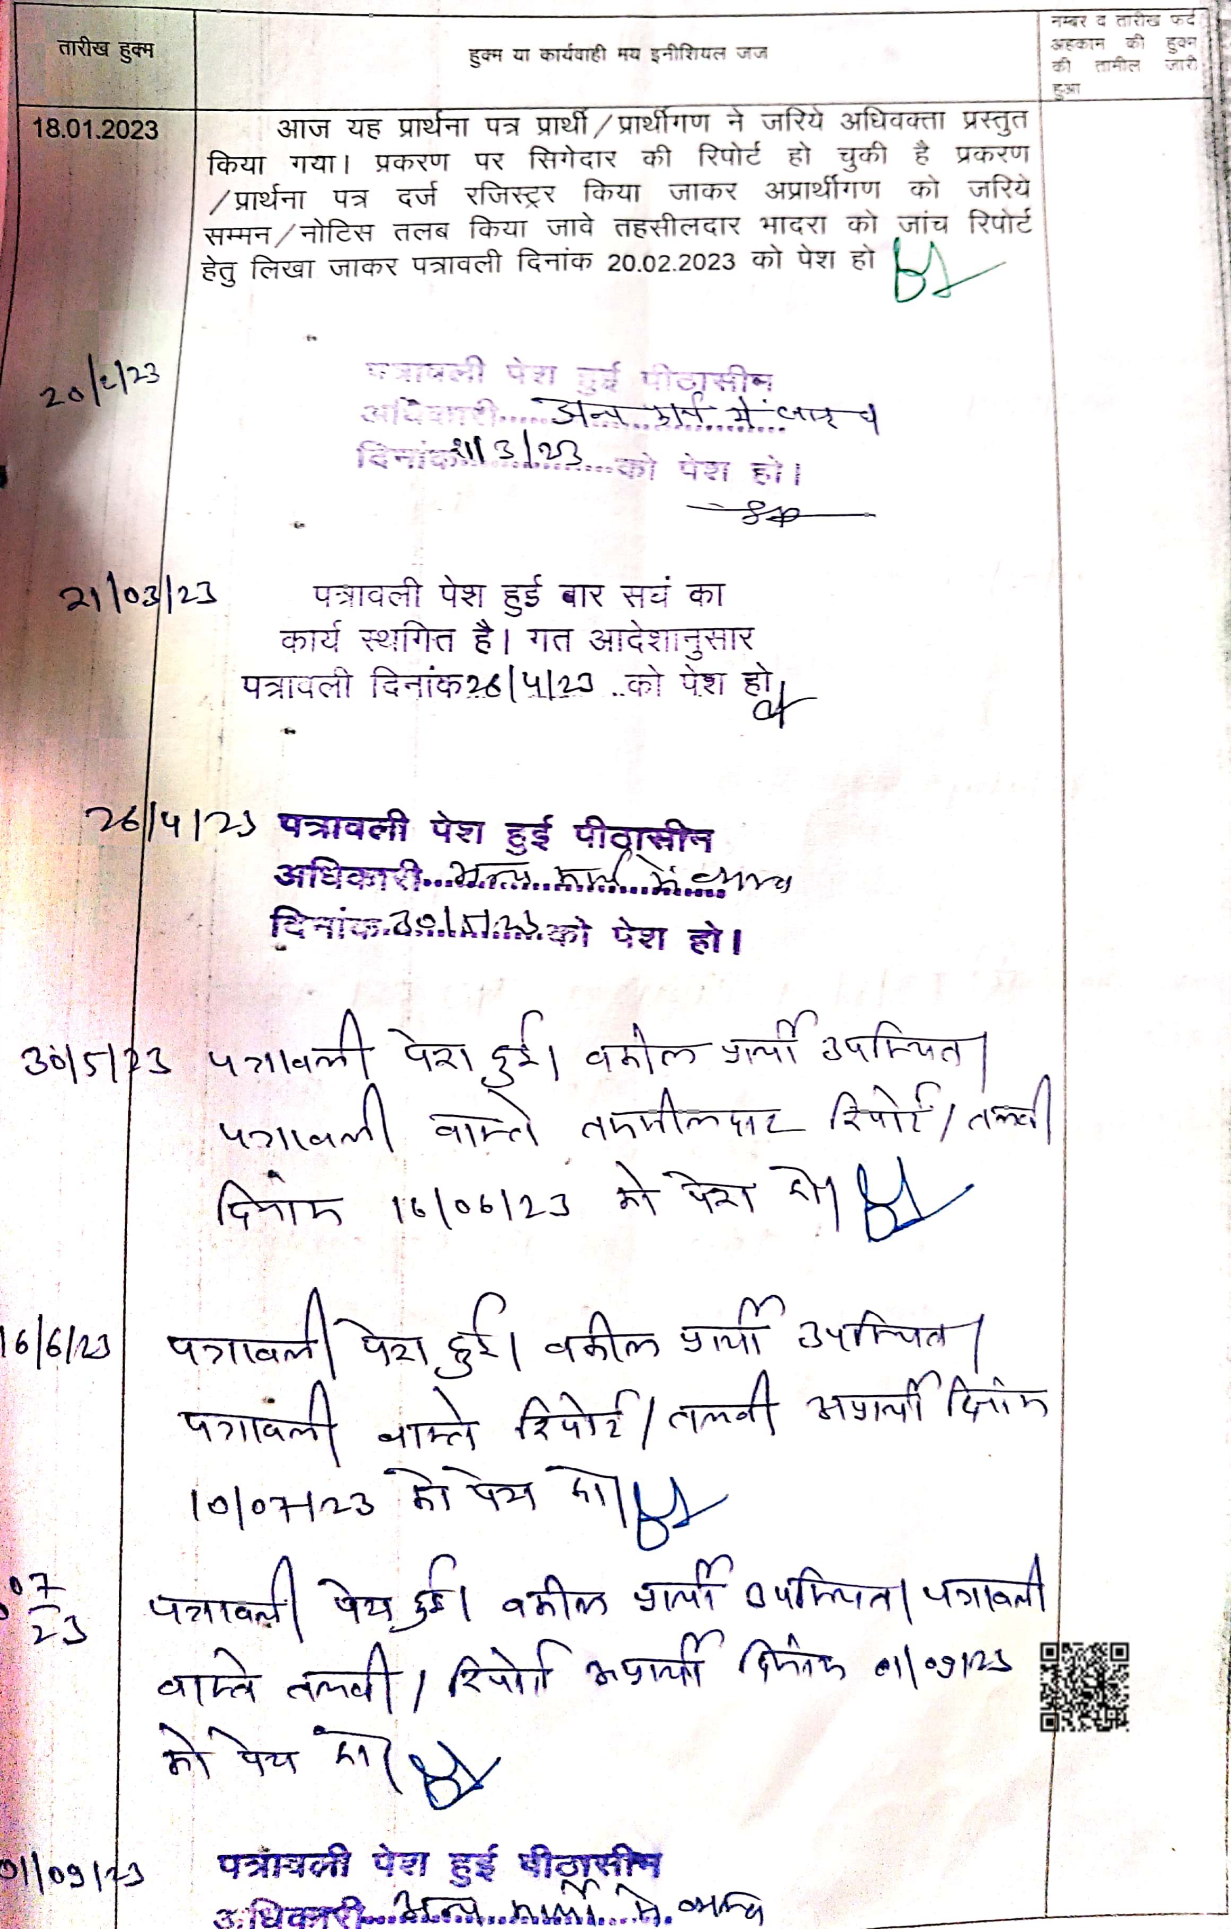 तारीख हुक्म
हुक्म या कार्यवाही मय इनीशियल जज
नम्बर व तारीख फर्द
अहकाम की हुक्म
की तामील जारी
हुआ
18.01.2023
आज यह प्रार्थना पत्र प्रार्थी/प्रार्थीगण ने जरिये अधिवक्ता प्रस्तुत
किया गया। प्रकरण पर सिगेदार की रिपोर्ट हो चुकी है प्रकरण
/प्रार्थना पत्र दर्ज रजिस्ट्रर किया जाकर अप्रार्थीगण को जरिये
सम्मन/नोटिस तलब किया जावे तहसीलदार भादरा को जांच रिपोर्ट
हेतु लिखा जाकर पत्रावली दिनांक 20.02.2023 को पेश हो
20/2/23
पत्रावली पेश हुई पीठासीन
अधिकारी......अन्य कार्य में
दिनांक 21/3/23 को पेश हो।
21/03/23
पत्रावली पेश हुई बार सघं का
कार्य स्थगित है। गत आदेशानुसार
पत्रावली दिनांक 26/4/23 ..को पेश हो
26/4/23
पत्रावली पेश हुई पीठासीन
अधिकारी...अन्य कार्य में व्यस्त
दिनांक.30/5/23.को पेश हो।
30/5/23
पत्रावली पेश हुई। वकील प्रार्थी उपस्थित।
पत्रावली वास्ते तहसीलदार रिपोर्ट/तलबी
दिनांक 16/06/23 को पेश हो।
16/6/23
पत्रावली पेश हुई। वकील प्रार्थी उपस्थित।
पत्रावली वास्ते रिपोर्ट/तलबी अप्रार्थी दिनांक
10/07/23 को पेश हो।
07
23
पत्रावली पेश हुई। वकील प्रार्थी उपस्थित। पत्रावली
वास्ते तलबी/रिपोर्ट अप्रार्थी दिनांक 01/09/23
को पेश हो।
01/09/23
पत्रावली पेश हुई पीठासीन
अधिकारी...अन्य कार्य में व्यस्त